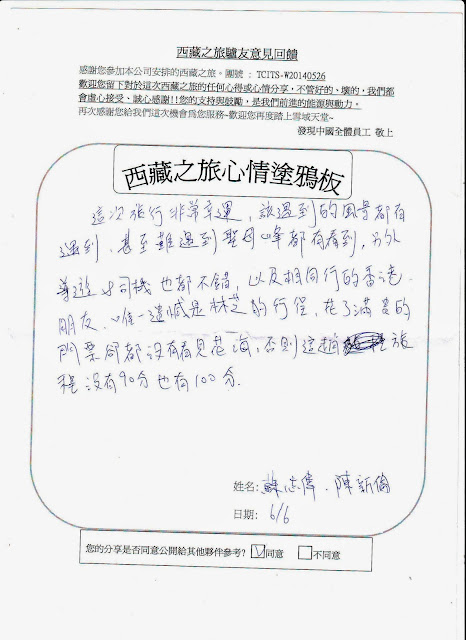 西藏之旅驢友意見回饋
感謝您參加本公司安排的西藏之旅。團號 : TCITS-W20140526
歡迎您留下對於這次西藏之旅的任何心得或心情分享，不管好的、壞的，我們都
會虛心接受、誠心感謝!!您的支持與鼓勵，是我們前進的能源與動力。
再次感謝您給我們這次機會為您服務~歡迎您再度踏上雪域天堂~
發現中國全體員工 敬上
西藏之旅心情塗鴉板
這次旅行非常幸運，該遇到的風景都有
遇到，甚至難遇到聖母峰都有看到，另外
導遊&司機也都不錯，以及相同行的香港
朋友，唯一遺憾是林芝的行程，花了滿貴的
門票卻都沒有看見花海，否則這趟旅
程沒有90分也有100分.
姓名: 蘇志偉、陳新倫
日期: 6/6
您的分享是否同意公開給其他夥伴參考? ☑同意 □不同意